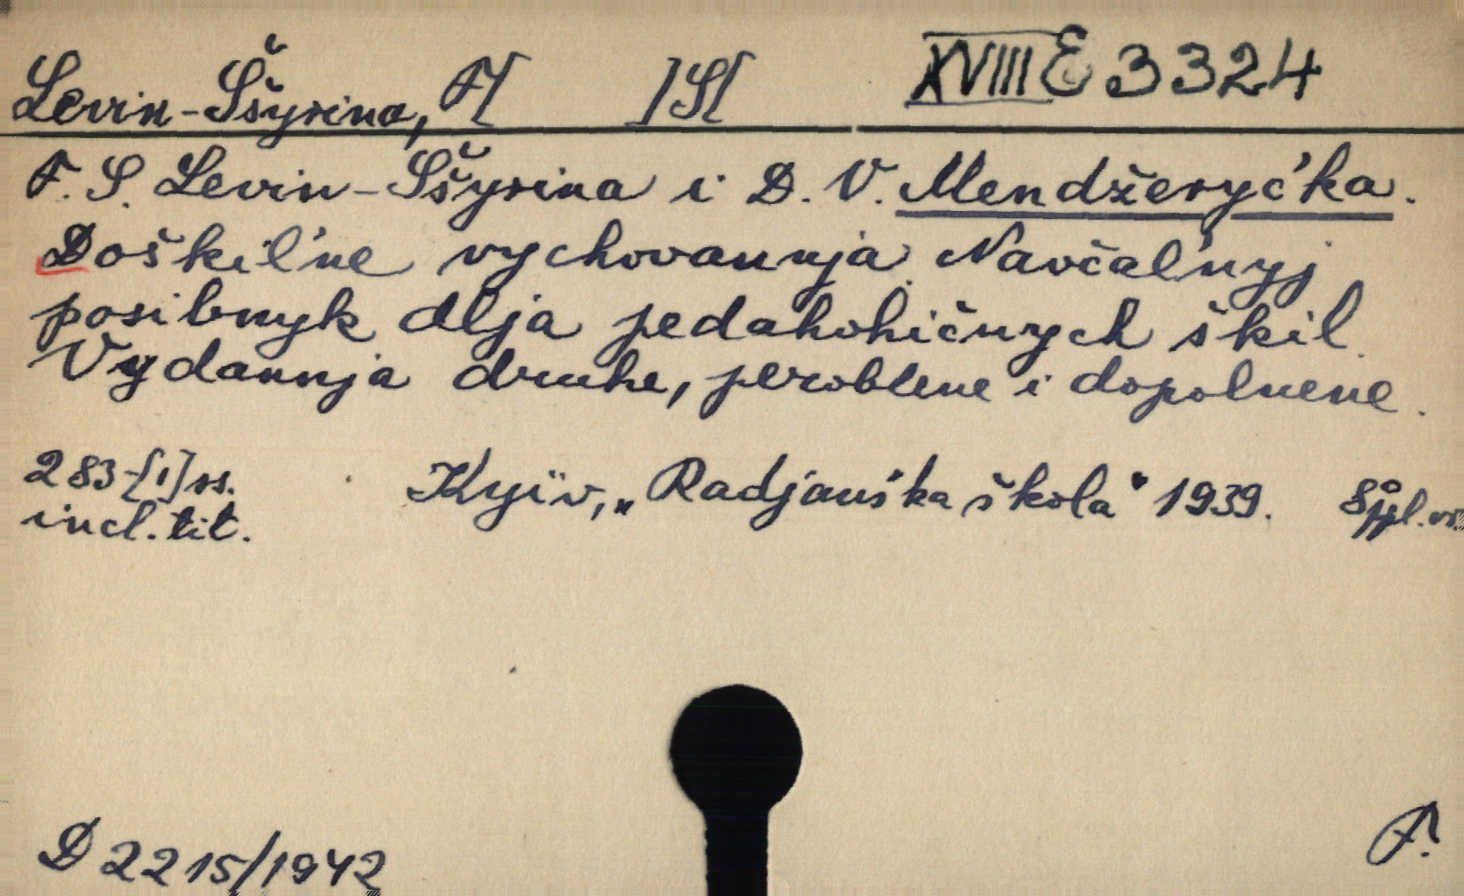 Levin-Sšyrina, F[ ]S[ XVIII E 3324
F. S. Levin-Sšyrina i D. V. Mendžeryc'ka.
Doškil'ne vychovannja. Navčal'nyj
posibnyk dlja pedahohičnych škil.
Vydannja druhe, peroblene i dopolnene.
283-[1] ss. Kyïv, „Radjans'ka škola" 1939. 8°
incl. tit.
D 2215/1942 F.